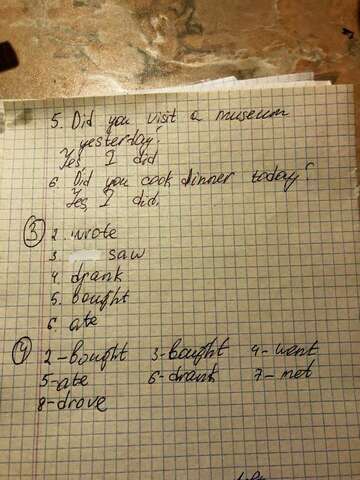 5. Did you visit a museum
yesterday?
Yes, I did
6. Did you cook dinner today?
Yes, I did.
3 2. wrote
3. saw
4 drank
5. bought
6. ate
4 2-bought 3-bought 4-went
5-ate 6-drank 7-met
8-drove